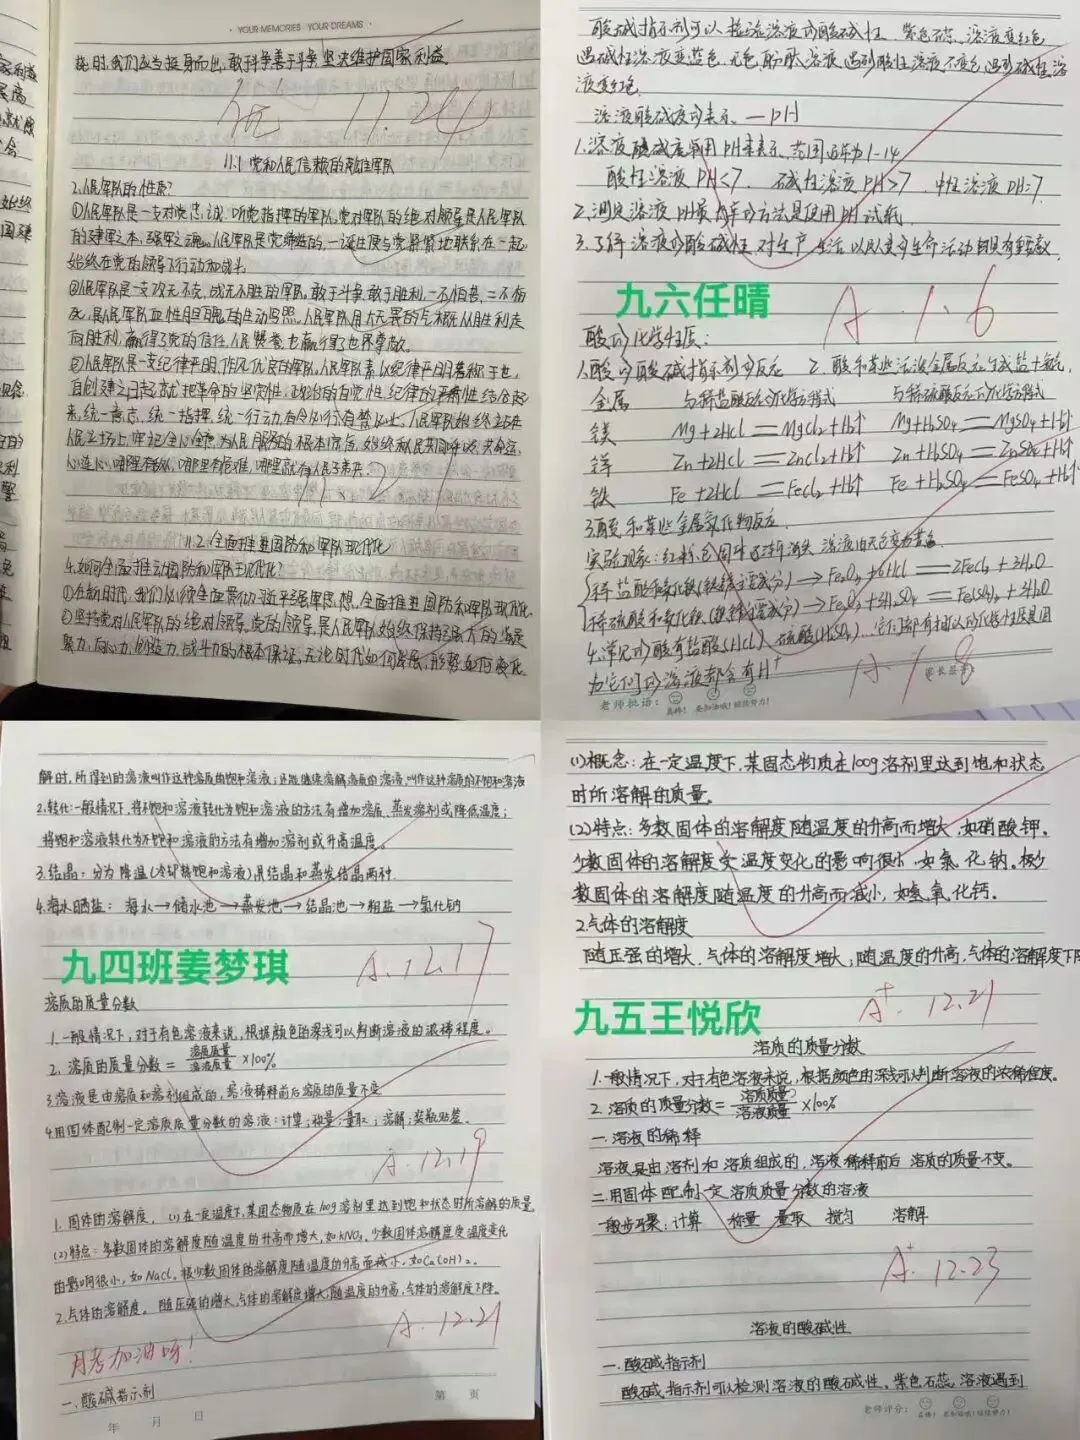 YOUR MEMORIES YOUR DREAMS
我们应当挺身而出,敢于斗争善于斗争,坚决维护国家利益.
优 11.24
11.1 党和人民信赖的英雄军队
2.人民军队的性质?
①人民军队是一支对党忠诚、听党指挥的军队,党对军队的绝对领导是人民军队
的建军之本,强军之魂。人民军队是党缔造的,一诞生便与党紧紧地联系在一起
始终在党的领导下行动和战斗
②人民军队是一支攻无不克,战无不胜的军队。敢于斗争敢于胜利,一不怕苦、二不怕
死,是人民军队血性胆魄的生动写照。人民军队用大无畏的气概从胜利走
向胜利,赢得了党的信任,人民赞誉也赢得了世界尊敬。
③人民军队是一支纪律严明,作风优良的军队。人民军队素以纪律严明著称于世,
自创建之日起就把革命的坚定性,政治的自觉性,纪律的严肃性结合起
来,统一意志,统一指挥,统一行动,有令必行有禁必止。人民军队始终站在
人民立场上,牢记全心全意为人民服务的根本宗旨,始终和人民共同呼吸,共命运,
心连心,哪里有敌人,哪里有危难,哪里就有人民子弟兵。
11.2 全面推进国防和军队现代化
4.如何全面推动国防和军队现代化?
①在新时代,我们必须全面贯彻习近平强军思想,全面推进国防和军队现代化.
②坚持党对人民军队的绝对领导。党的领导,是人民军队始终保持强大的凝聚
聚力,向心力,创造力,战斗力的根本保证,无论时代如何发展,形势如何变化
酸碱指示剂可以检验溶液的酸碱性 紫色石蕊 溶液变红色
遇碱性溶液变蓝色,无色酚酞溶液遇到酸性溶液不变色,遇到碱性溶
液变红色.
溶液酸碱度的表示 — pH
1.溶液酸碱度常用pH来表示,范围通常为1-14
酸性溶液 PH<7 碱性溶液PH>7 中性溶液PH=7
2.测定溶液PH最简单的方法是使用PH试纸
3.了解溶液的酸碱性,对生产,生活以及人类的生命活动都具有重要意义
九六任晴
A 1.6
酸的化学性质:
1.酸与酸碱指示剂的反应 2.酸和某些活泼金属反应生成盐+氢气
金属 与稀盐酸反应的化学方程式 与稀硫酸反应的化学方程式
镁 Mg+2HCl=MgCl2+H2↑ Mg+H2SO4=MgSO4+H2↑
锌 Zn+2HCl=ZnCl2+H2↑ Zn+H2SO4=ZnSO4+H2↑
铁 Fe+2HCl=FeCl2+H2↑ Fe+H2SO4=FeSO4+H2↑
3.酸和某些金属氧化物反应.
实验现象:红粉色固体逐渐消失 溶液由无色变为黄色
稀盐酸和氧化铁(铁锈主要成分)→Fe2O3+6HCl=2FeCl3+3H2O
稀硫酸和氧化铁(铁锈主要成分)→Fe2O3+3H2SO4=Fe2(SO4)3+3H2O
4.常见的酸有盐酸(HCl)、硫酸(H2SO4)...它们都有相似的化学性质是因
为它们的溶液都含有H+
A 1.8
家长签字:
老师批语: 真棒! 要加油哦! 继续努力!
解时,所得到的溶液叫作这种溶质的饱和溶液;还能继续溶解溶质的溶液,叫作这种溶质的不饱和溶液
2.转化:一般情况下,将不饱和溶液转化为饱和溶液的方法有增加溶质、蒸发溶剂或降低温度;
将饱和溶液转化为不饱和溶液的方法有增加溶剂或升高温度。
3.结晶:分为降温(冷却热饱和溶液)结晶和蒸发结晶两种.
4.海水晒盐:海水→储水池→蒸发池→结晶池→粗盐→氯化钠
九四班姜梦琪
A.12.17
溶质的质量分数
1.一般情况下,对于有色溶液来说,根据颜色的深浅可以判断溶液的浓稀程度。
2.溶质的质量分数=溶质质量/溶液质量×100%
3.溶液是由溶质和溶剂组成的,溶液稀释前后溶质的质量不变
4.用固体配制一定溶质质量分数的溶液:计算;称量;量取;溶解;装瓶贴签。
A.12.19
1.固体的溶解度。(1)在一定温度下,某固态物质在100g溶剂里达到饱和状态时所溶解的质量.
(2)特点:多数固体的溶解度随温度的升高而增大,如KNO3,少数固体溶解度受温度变化
的影响很小,如NaCl,极少数固体的溶解度随温度的升高而减小,如Ca(OH)2。
2.气体的溶解度。随压强的增大,气体的溶解度增大;随温度的升高,气体的溶解度下降。
A.12.21
月考加油呀!
一.酸碱指示剂
第 页
年 月 日
(1)概念:在一定温度下,某固态物质在100g溶剂里达到饱和状态
时所溶解的质量。
(2)特点:多数固体的溶解度随温度的升高而增大,如硝酸钾.
少数固体的溶解度受温度变化的影响很小,如氯化钠.极少
数固体的溶解度随温度的升高而减小,如氢氧化钙.
2.气体的溶解度
随压强的增大,气体的溶解度增大;随温度的升高,气体的溶解度下降
A+ 12.21
九五王悦欣
溶质的质量分数
1.一般情况下,对于有色溶液来说,根据颜色的深浅可以判断溶液的浓稀程度。
2.溶质的质量分数=溶质质量/溶液质量×100%
一.溶液的稀释
溶液是由溶剂和溶质组成的,溶液稀释前后溶质的质量不变。
二.用固体配制一定溶质质量分数的溶液
一般步骤:计算 称量 量取 搅匀 溶解
A+ 12.23
溶液的酸碱性
一.酸碱指示剂
酸碱指示剂可以检测溶液的酸碱性。紫色石蕊溶液遇到
老师评分: 真棒! 要加油哦! 继续努力!